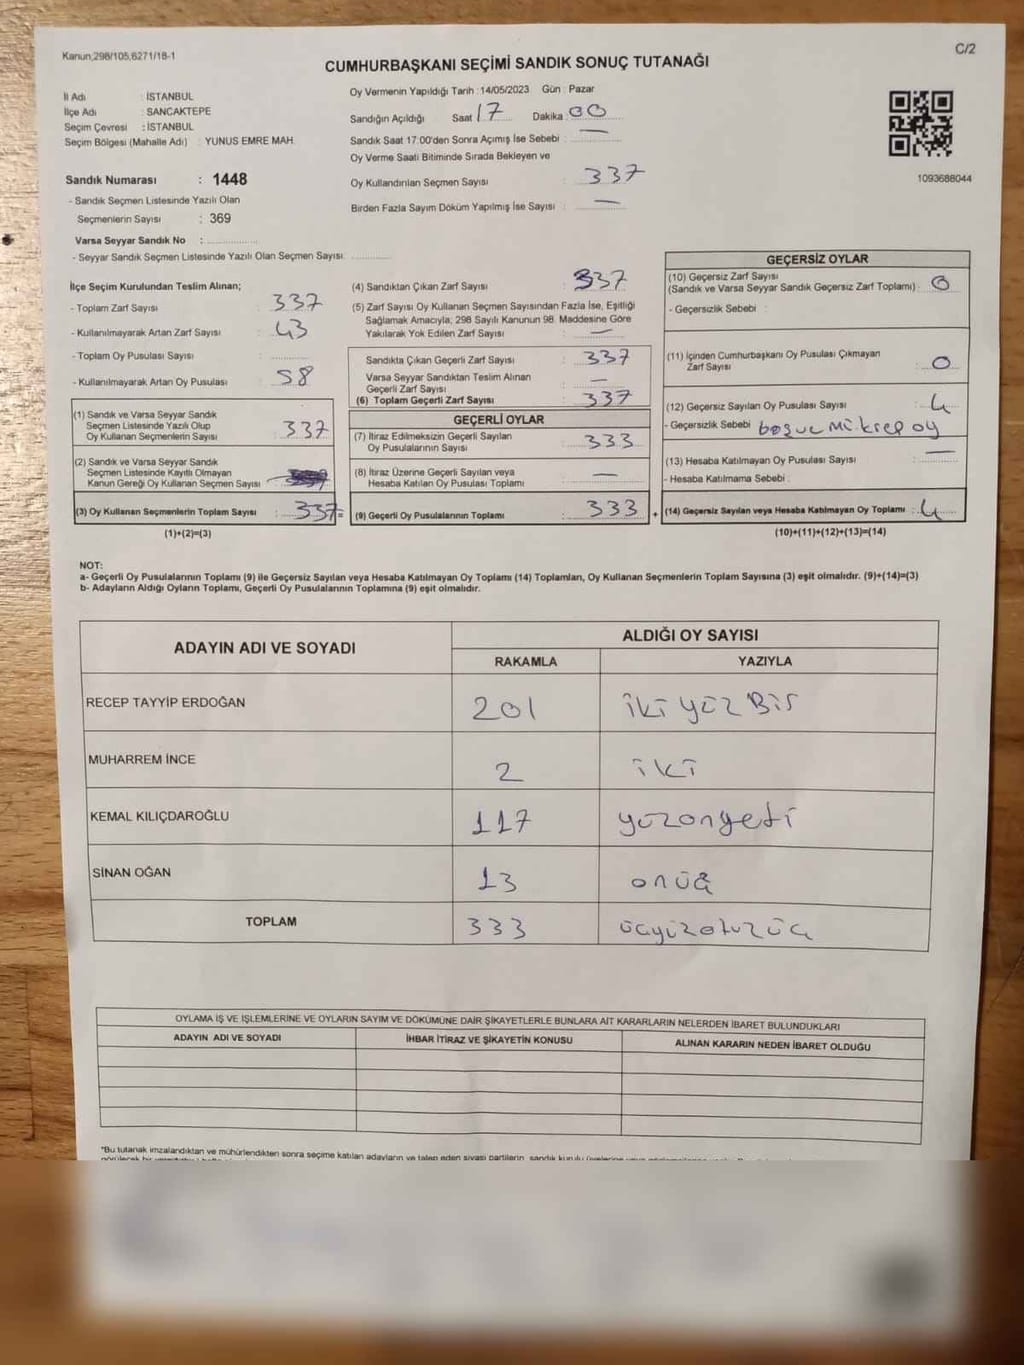 Kanun;298/105,6271/18-1
C/2
CUMHURBAŞKANI SEÇİMİ SANDIK SONUÇ TUTANAĞI
İl Adı : İSTANBUL
İlçe Adı : SANCAKTEPE
Seçim Çevresi : İSTANBUL
Seçim Bölgesi (Mahalle Adı) : YUNUS EMRE MAH.
Sandık Numarası : 1448
- Sandık Seçmen Listesinde Yazılı Olan
Seçmenlerin Sayısı : 369
Varsa Seyyar Sandık No :
- Seyyar Sandık Seçmen Listesinde Yazılı Olan Seçmen Sayısı:
Oy Vermenin Yapıldığı Tarih :14/05/2023 Gün : Pazar
Sandığın Açıldığı Saat 17 Dakika 00
Sandık Saat 17:00'den Sonra Açımış İse Sebebi : —
Oy Verme Saati Bitiminde Sırada Bekleyen ve
Oy Kullandırılan Seçmen Sayısı : 337
Birden Fazla Sayım Döküm Yapılmış İse Sayısı : —
1093688044
İlçe Seçim Kurulundan Teslim Alınan;
- Toplam Zarf Sayısı : 337
- Kullanılmayarak Artan Zarf Sayısı : 43
- Toplam Oy Pusulası Sayısı :
- Kullanılmayarak Artan Oy Pusulası : 58
(1) Sandık ve Varsa Seyyar Sandık
Seçmen Listesinde Yazılı Olup
Oy Kullanan Seçmenlerin Sayısı : 337
(2) Sandık ve Varsa Seyyar Sandık
Seçmen Listesinde Kayıtlı Olmayan
Kanun Gereği Oy Kullanan Seçmen Sayısı :
(3) Oy Kullanan Seçmenlerin Toplam Sayısı : 337=
(1)+(2)=(3)
(4) Sandıktan Çıkan Zarf Sayısı : 337
(5) Zarf Sayısı Oy Kullanan Seçmen Sayısından Fazla İse, Eşitliği
Sağlamak Amacıyla; 298 Sayılı Kanunun 98. Maddesine Göre
Yakılarak Yok Edilen Zarf Sayısı : —
Sandıkta Çıkan Geçerli Zarf Sayısı : 337
Varsa Seyyar Sandıktan Teslim Alınan
Geçerli Zarf Sayısı : —
(6) Toplam Geçerli Zarf Sayısı : 337
GEÇERLİ OYLAR
(7) İtiraz Edilmeksizin Geçerli Sayılan
Oy Pusulalarının Sayısı : 333
(8) İtiraz Üzerine Geçerli Sayılan veya
Hesaba Katılan Oy Pusulası Toplamı : —
(9) Geçerli Oy Pusulalarının Toplamı : 333 +
GEÇERSİZ OYLAR
(10) Geçersiz Zarf Sayısı
(Sandık ve Varsa Seyyar Sandık Geçersiz Zarf Toplamı) : 0
- Geçersizlik Sebebi :
(11) İçinden Cumhurbaşkanı Oy Pusulası Çıkmayan
Zarf Sayısı : 0
(12) Geçersiz Sayılan Oy Pusulası Sayısı : 4
- Geçersizlik Sebebi : oy
(13) Hesaba Katılmayan Oy Pusulası Sayısı : —
- Hesaba Katılmama Sebebi :
(14) Geçersiz Sayılan veya Hesaba Katılmayan Oy Toplamı : 4
(10)+(11)+(12)+(13)=(14)
NOT:
a- Geçerli Oy Pusulalarının Toplamı (9) ile Geçersiz Sayılan veya Hesaba Katılmayan Oy Toplamı (14) Toplamları, Oy Kullanan Seçmenlerin Toplam Sayısına (3) eşit olmalıdır. (9)+(14)=(3)
b- Adayların Aldığı Oyların Toplamı, Geçerli Oy Pusulalarının Toplamına (9) eşit olmalıdır.
ADAYIN ADI VE SOYADI
ALDIĞI OY SAYISI
RAKAMLA YAZIYLA
RECEP TAYYİP ERDOĞAN 201 iki yüz Bir
MUHARREM İNCE 2 iki
KEMAL KILIÇDAROĞLU 117 yüzonyedi
SİNAN OĞAN 13 onüç
TOPLAM 333 üçyüzotuzüç
OYLAMA İŞ VE İŞLEMLERİNE VE OYLARIN SAYIM VE DÖKÜMÜNE DAİR ŞİKAYETLERLE BUNLARA AİT KARARLARIN NELERDEN İBARET BULUNDUKLARI
ADAYIN ADI VE SOYADI İHBAR İTİRAZ VE ŞİKAYETİN KONUSU ALINAN KARARIN NEDEN İBARET OLDUĞU
*Bu tutanak imzalandıktan ve mühürlendikten sonra seçime katılan adayların ve talep eden siyasi partilerin, sandık kurulu